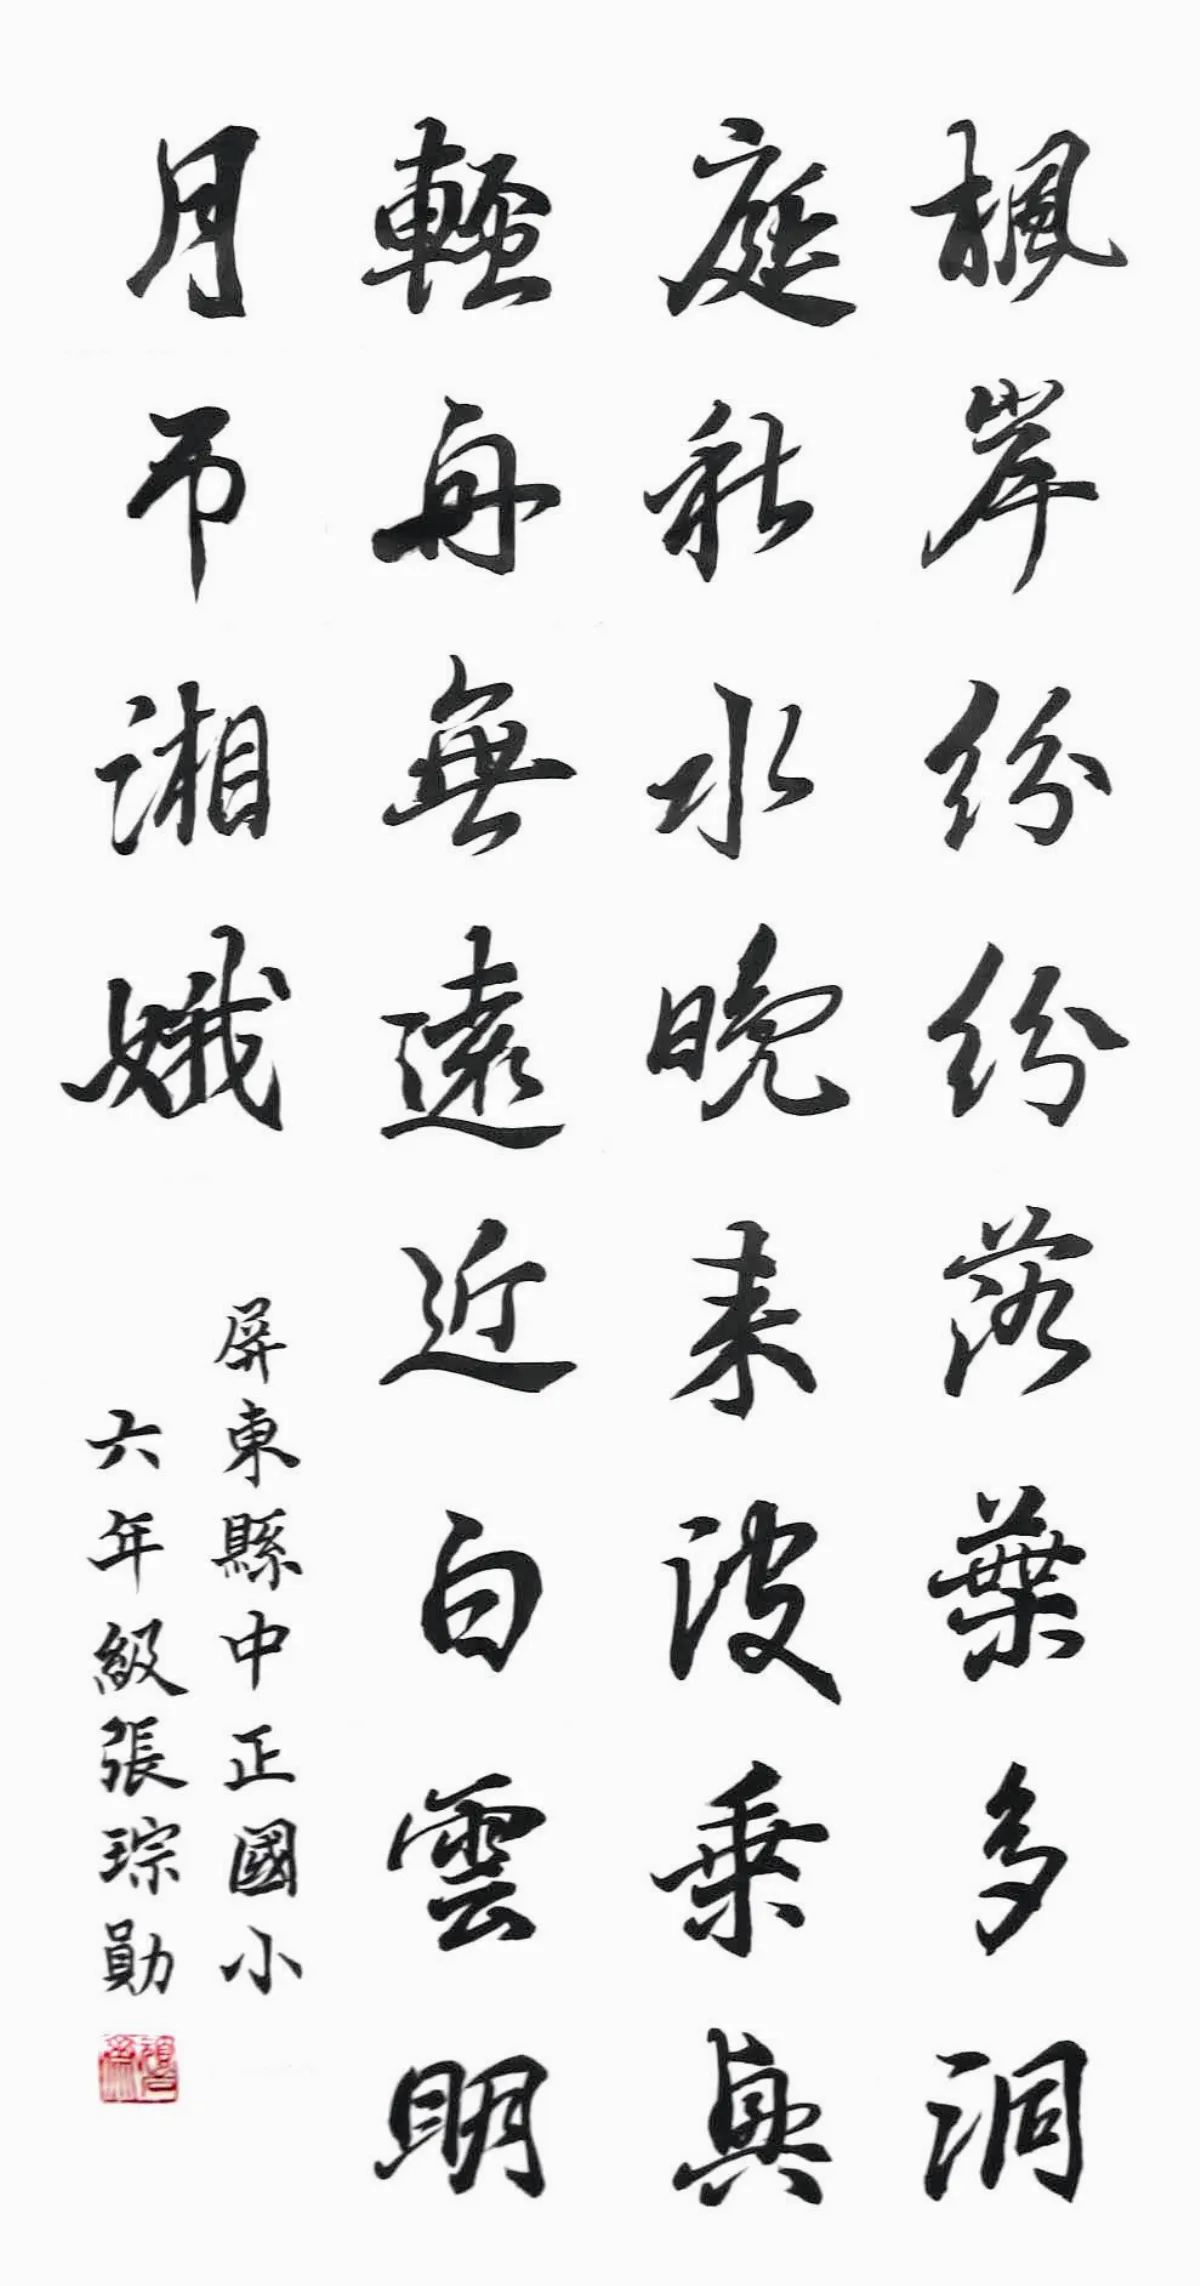 楓岸紛紛落葉多洞
庭秋水晚來波乘興
輕舟無遠近白雲明
月吊湘娥
屏東縣中正國小
六年級張琮勛